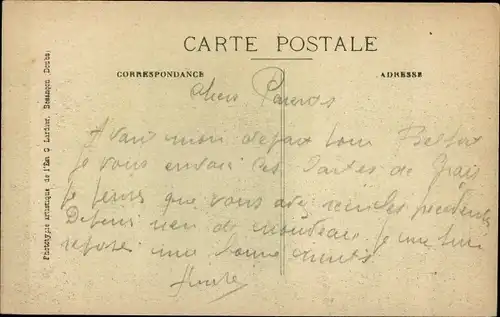 CARTE POSTALE
CORRESPONDANCE
ADRESSE
Phototypie artistique de l'Est C. Lardier, Besançon (Doubs)
chers Parents
Avant mon départ pour Belfort
je vous envoie ces Cartes de Gray
je pense que vous avez les précédentes
Depuis rien de nouveau je me suis
reposé une bonne